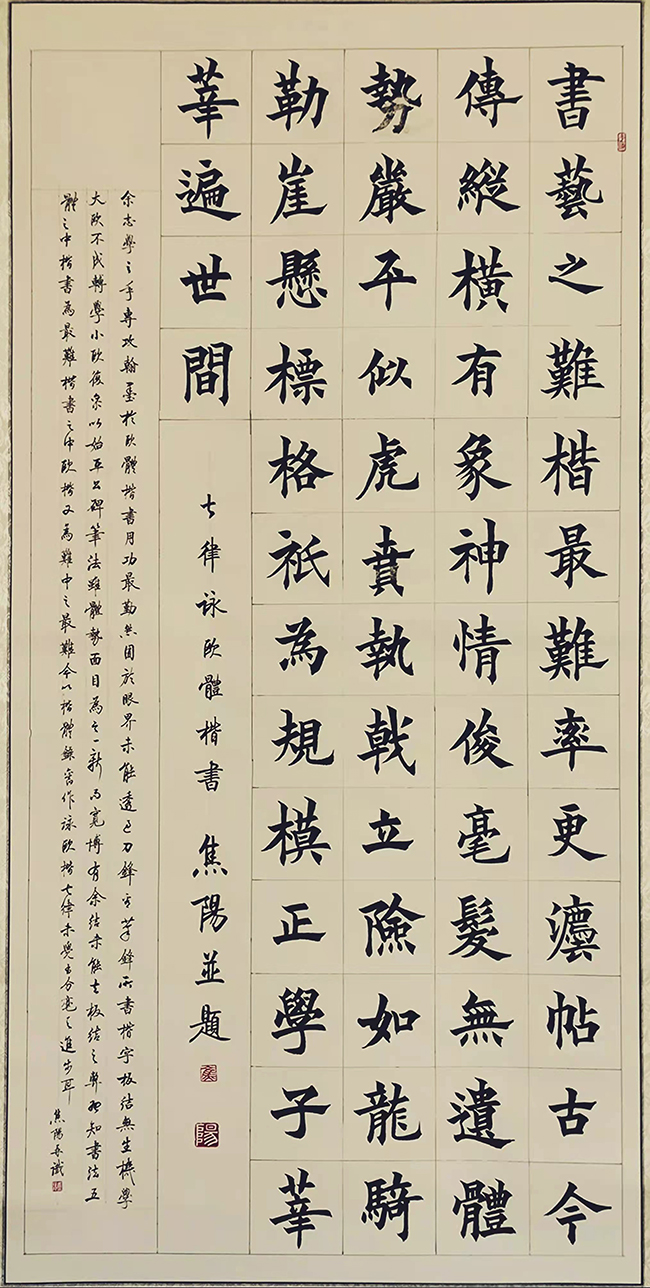 書藝之難楷最難率更灋帖古今
傳縱橫有象神情俊毫髮無遺體
勢嚴平似虎賁執戟立險如龍騎
勒崖懸標格祇為規模正學子莘
莘遍世間
七律詠欧體楷書 焦陽並題
余志學之年專攻翰墨於欧體楷書用功最勤然囿於眼界未能透過刀鋒看筆鋒所書楷字板結無生機學
大欧不成轉學小欧後參以始平公碑筆法雖體勢面目為之一新而寬博有余未能去板結之弊知書法五
體之中楷書為最難楷書之中欧楷又為難中之最難今以楷體作詠欧楷七律未覺有分毫之進步耳
焦陽再識